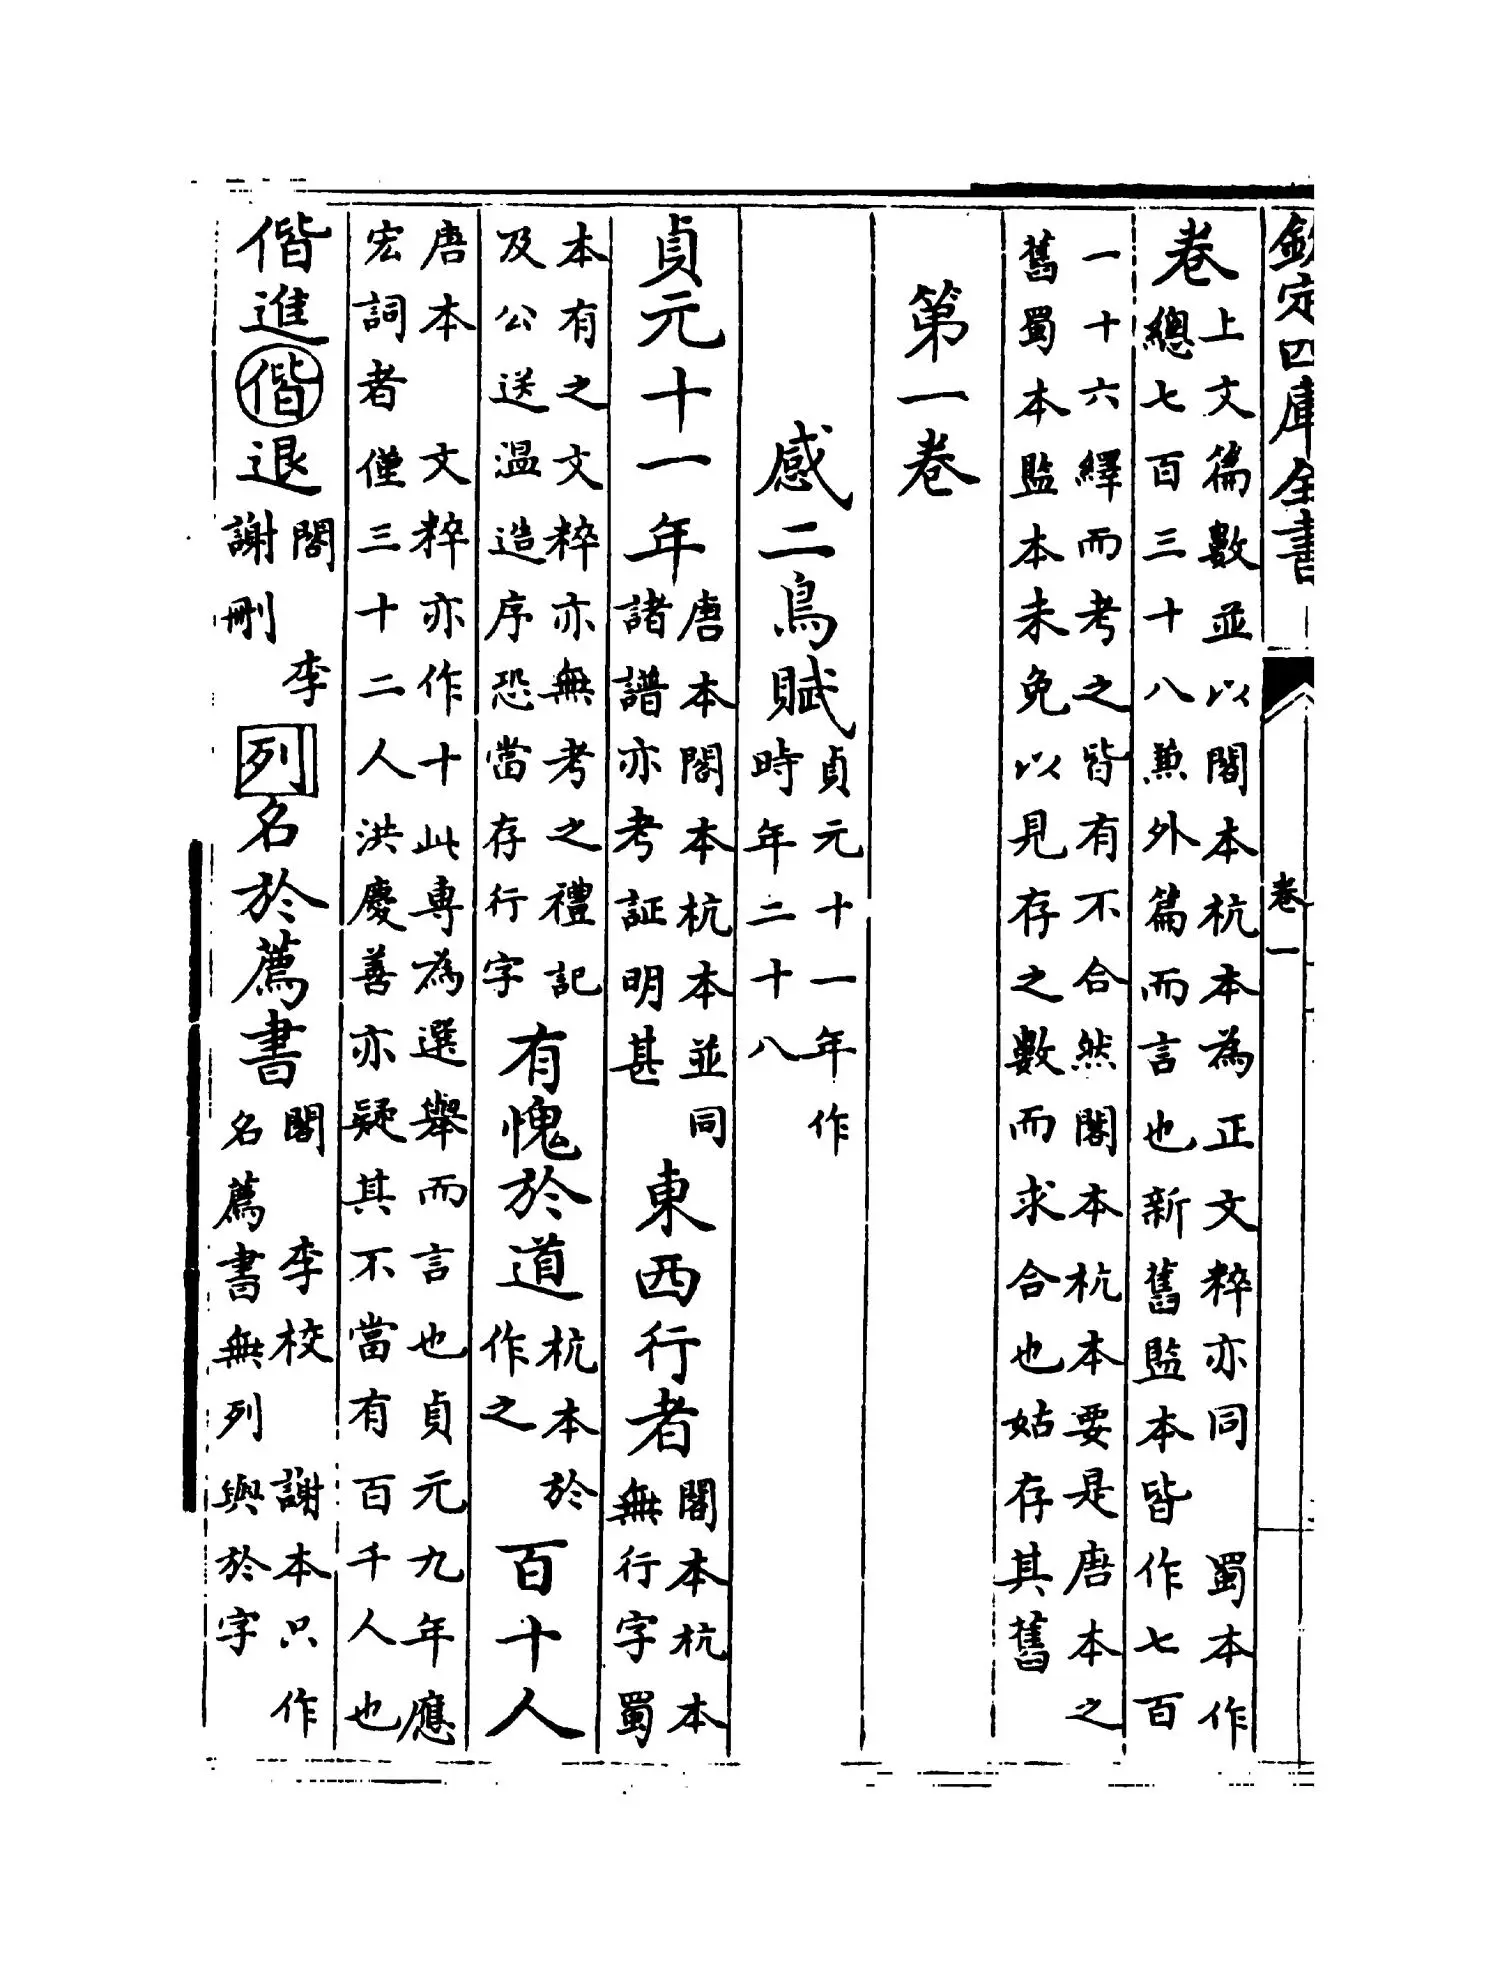 欽定四庫全書
卷一
卷上文篇數並以閣本杭本為正文粹亦同　蜀本作
總七百三十八兼外篇而言也新舊監本皆作七百
一十六繹而考之皆有不合然閣本杭本要是唐本之
舊蜀本監本未免以見存之數而求合也姑存其舊
第一卷
感二鳥賦貞元十一年作
時年二十八
貞元十一年唐本閣本杭本並同
諸譜亦考証明甚
東西行者閣本杭本
無行字蜀
本有之文粹亦無考之禮記
及公送溫造序恐當存行字
有愧於道杭本於
作之
百十人
唐本　文粹亦作十此專為選舉而言也貞元九年應
宏詞者僅三十二人洪慶善亦疑其不當有百千人也
偕進偕退閣　李
謝刪
列名於薦書閣　李校　謝本只作
名薦書無列與於字